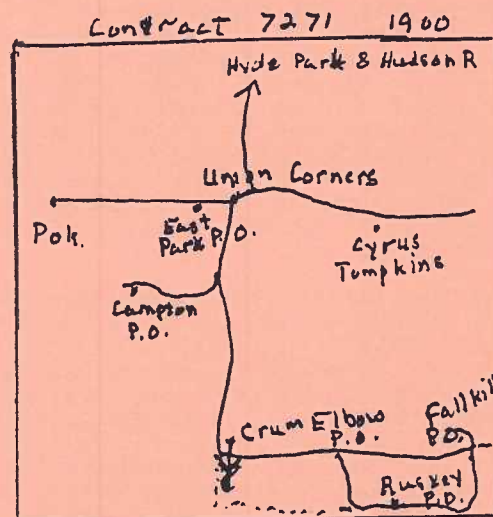 Contract 7271 1900
Hyde Park & Hudson R
Union Corners
Pok.
East
Park P.O.
Cyrus
Tompkins
Campton
P.O.
Crum Elbow
P.O.
Fallkill
P.O.
Ruskey
P.O.